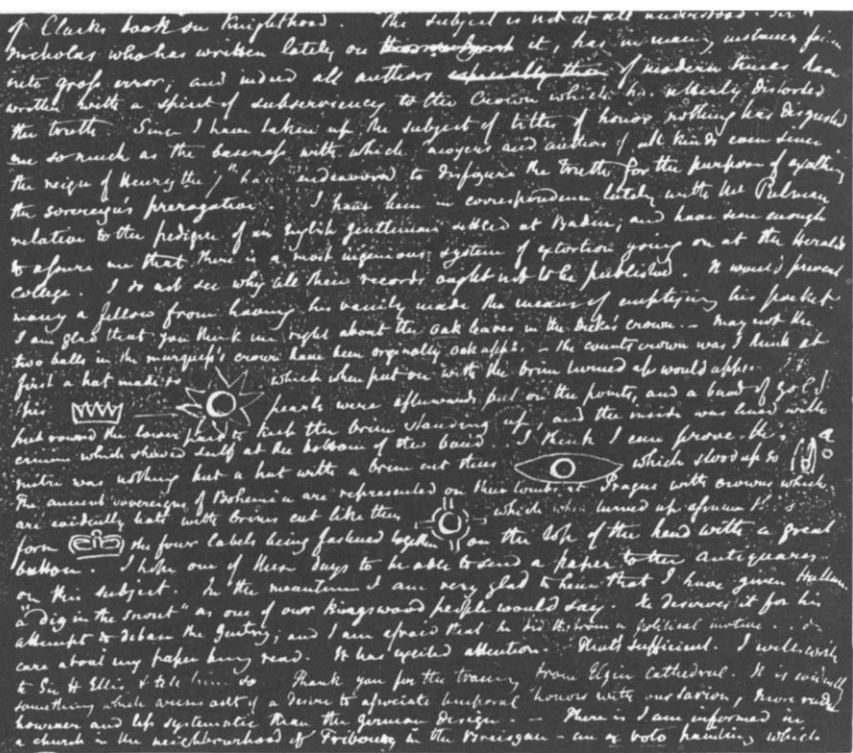 of Clarks book on Knighthood. The subject is not at all understood. Sir N
Nicholas who has written lately on the subject it, has in many instances fallen
into grofs error, and indeed all authors especially those of modern times have
written with a spirit of subserviency to the Crown which has utterly distorted
the truth Since I have taken up the subject of titles of honor nothing has disgusted
me so much as the basenefs with which lawyers and authors of all kinds ever since
the reign of Henry the 7th have endeavored to disfigure the truth for the purpose of exalting
the sovereign's prerogative I have been in correspondence lately with Mr Pulman
relative to the pedigree of an english gentleman settled at Baden, and have seen enough
to afsure me that there is a most ingenious system of extortion going on at the Heralds
College. I do not see why all these records ought not to be published. It would prevent
many a fellow from having his vanity made the means of emptying his pocket.
I am glad that you think me right about the oak leaves in the Duke's crown. — May not the
two balls in the marquefs's crown have been originally oak apples — the counts crown was I think at
first a hat made so which when put on with the brim turned up would appear
this pearls were afterwards put on the points, and a band of gold
put round the lower part to keep the brim standing up, and the inside was lined with
ermine which shewed itself at the bottom of the band. I think I can prove the
mitre was nothing but a hat with a brim cut thus which stood up so
The ancient sovereigns of Bohemia are represented on their tombs at Prague with crowns which
are evidently hats with brims cut like this which when turned up afsume this
form the four labels being fastened together on the top of the head with a great
button. I hope one of these days to be able to send a paper to the antiquaries
on this subject. In the meantime I am very glad to hear that I have given Hallam
a "dig in the snout" as one of our Kingswood people would say. He deserves it for his
attempt to debase the Gentry; and I am afraid that he did it from a political motive.
care about my paper being read. It has excited attention. That's sufficient. I will write
to Sir H Ellis & tell him so Thank you for the tracing from Elgin Cathedral. It is evidently
something which arises out of a desire to afsociate temporal honors with our Saviour, more rude
however and lefs systematic than the german design. — There is I am informed in
a church in the neighbourhood of Fribourg in the Breisgau — an ex voto painting which